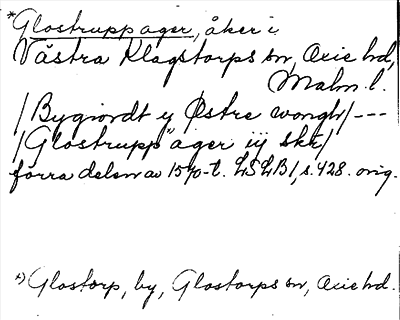 *Glostrupp ager, åker i
Västra Klagstorps sn, Oxie hd,
Malm. l.
/Bygiordt y Østre wongh/---
/Glostrupp" ager iij skr/
förra delen av 1570-t. LSLB1, s. 428. orig.
*) Glostorp, by, Glostorps sn, Oxie hd.